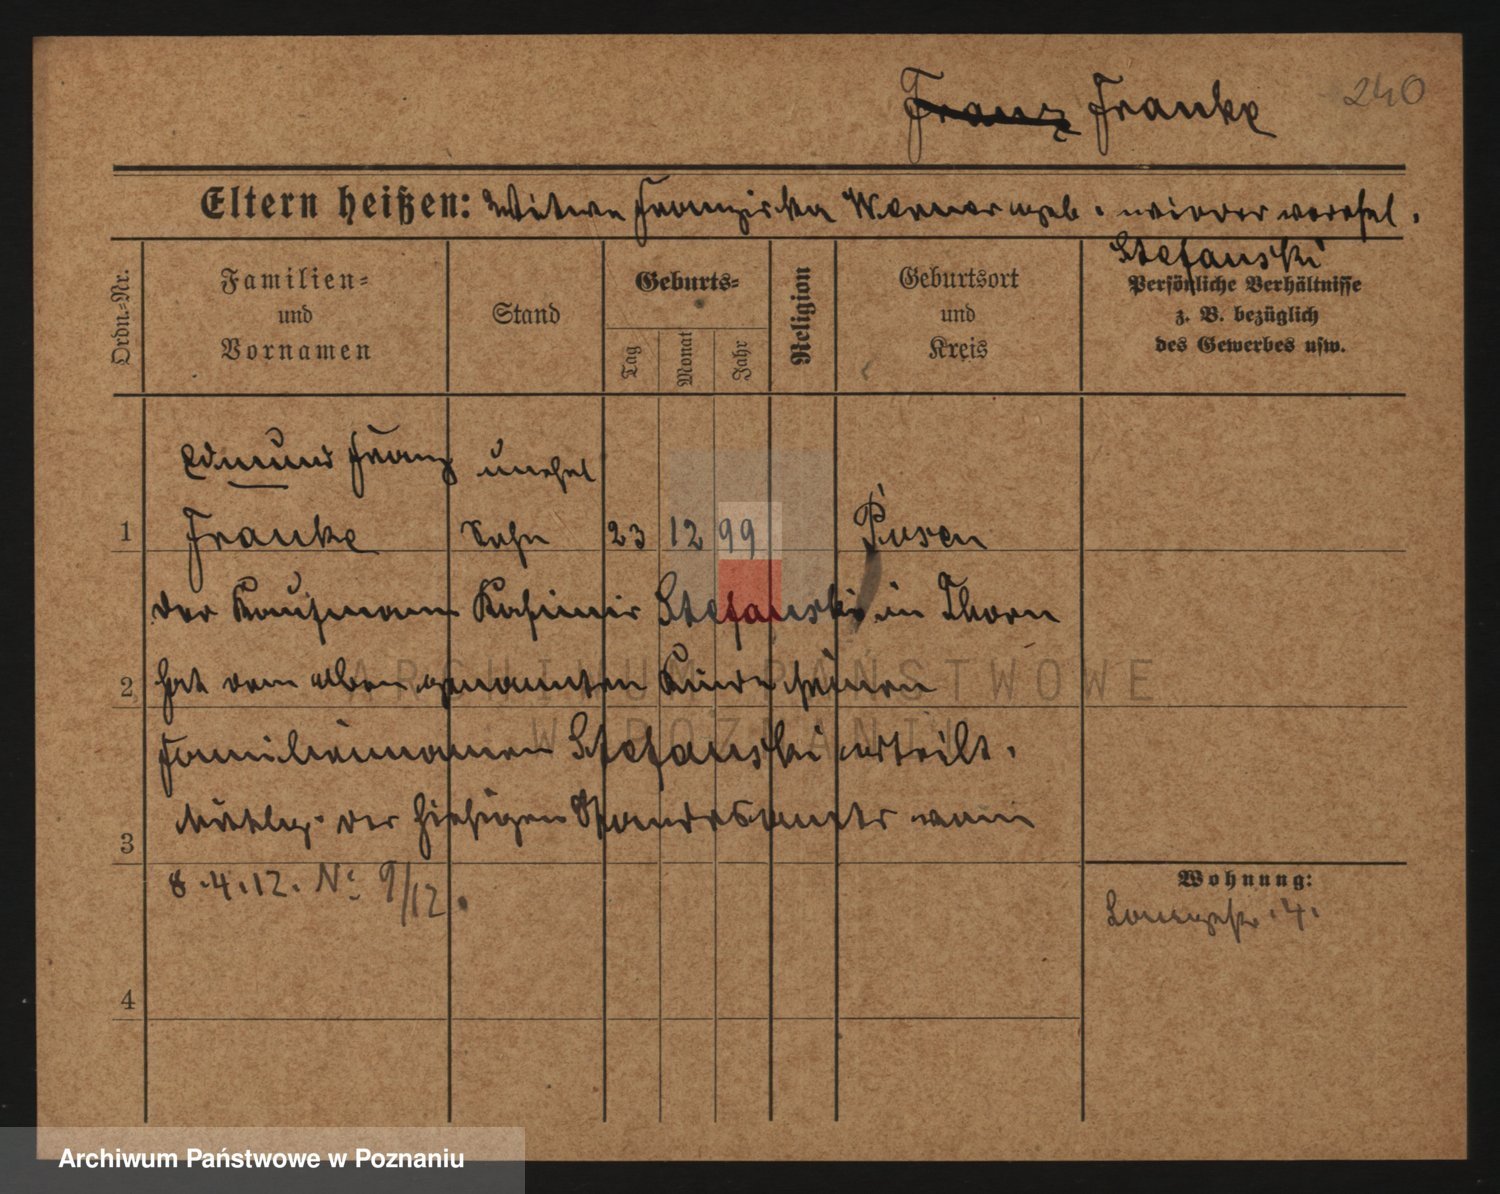 Franz Franke 240
Eltern heißen: Witwe Franziska Werner geb. wieder verehel.
Stefanski
Ordn.-Nr.
Familien-
und
Vornamen
Stand
Geburts-
Tag
Monat
Jahr
Religion
Geburtsort
und
Kreis
Persönliche Verhältnisse
z. B. bezüglich
des Gewerbes usw.
Edmund Franz unehel
1 Franke Sohn 23 12 99 Posen
der Kaufmann Kasimir Stefanski in Thorn
2 hat dem oben genannten Kinde seinen
Familiennamen Stefanski erteilt.
3 Mittlg. des hiesigen Standesamts vom
8.4.12. No 9/12.
4
Wohnung:
4.
ARCHIWUM PAŃSTWOWE
W POZNANIU
Archiwum Państwowe w Poznaniu